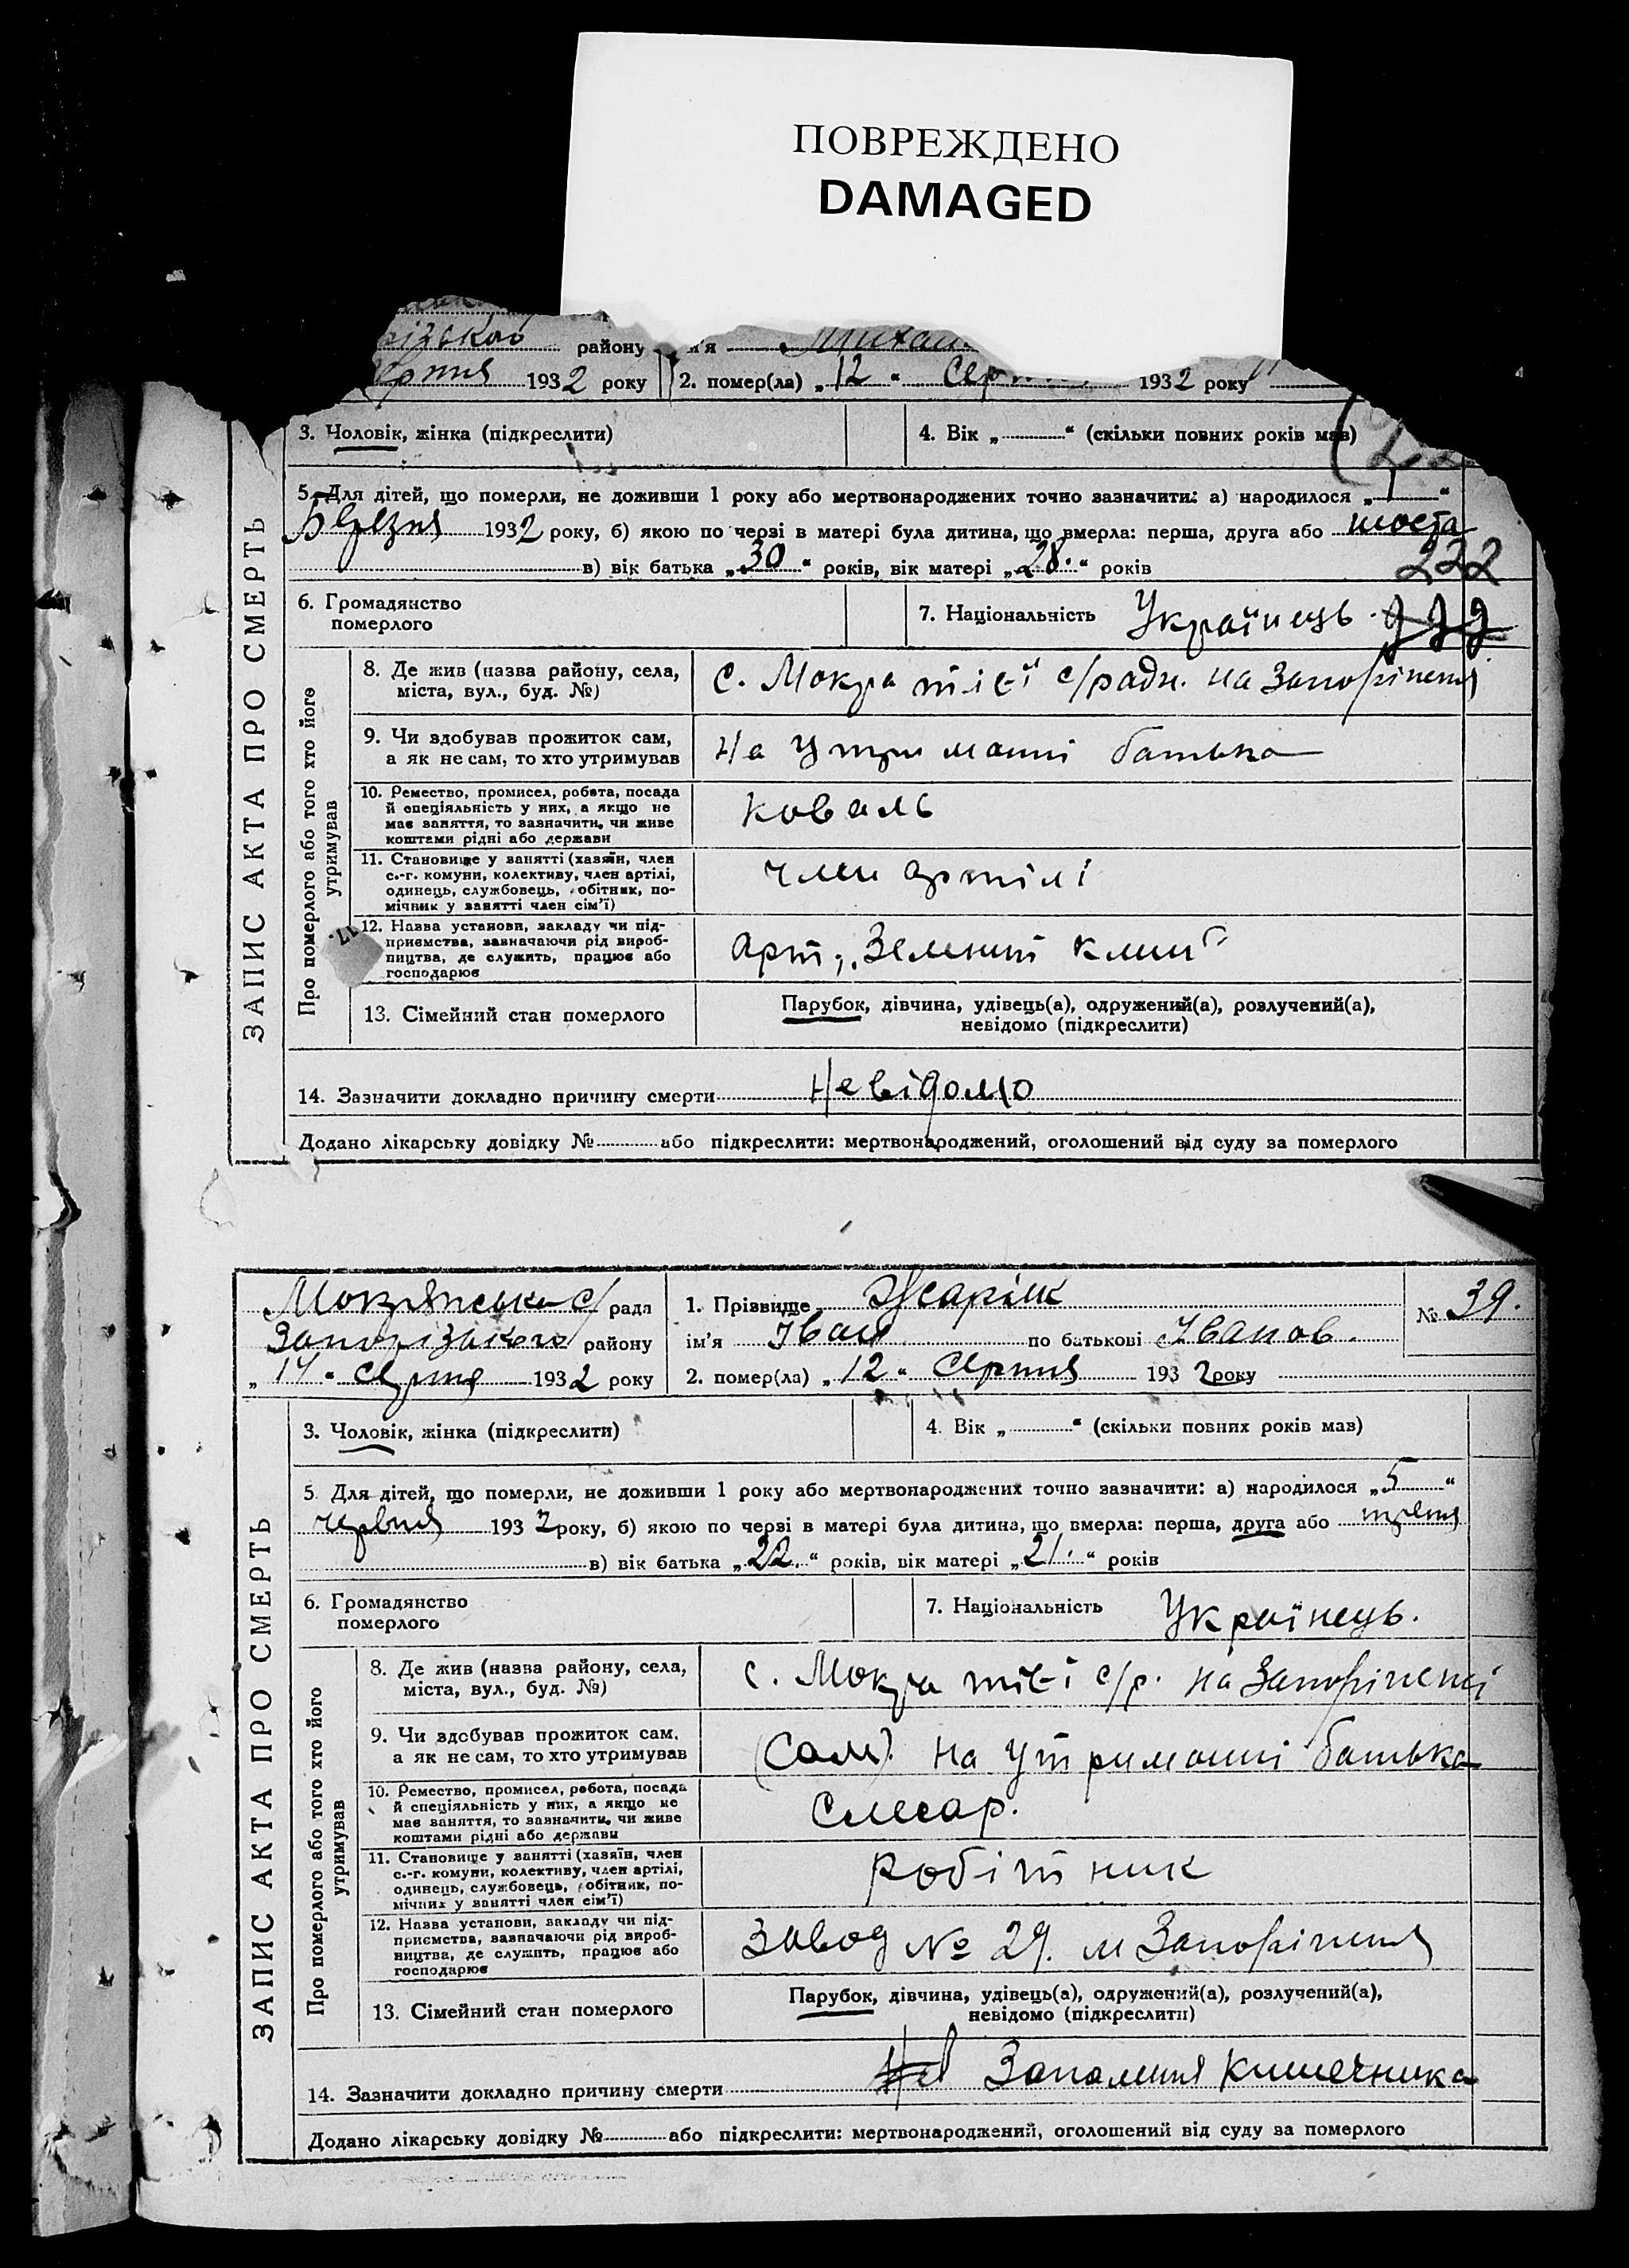 ПОВРЕЖДЕНО
DAMAGED
району
1932 року
2. помер(ла) „12“ 1932 року
3. Чоловік, жінка (підкреслити)
4. Вік „ “ (скільки повних років мав)
5. Для дітей, що померли, не доживши 1 року або мертвонароджених точно зазначити: а) народилося „1“
Березня 1932 року, б) якою по черзі в матері була дитина, що вмерла: перша, друга або шоста
в) вік батька „30“ років, вік матері „28.“ років
222
6. Громадянство
померлого
7. Національність Українець.
8. Де жив (назва району, села,
міста, вул., буд. №)
с. Мокра тієї с/ради. на Запоріжжі
9. Чи здобував прожиток сам,
а як не сам, то хто утримував
На утриманні батька
10. Ремество, промисел, робота, посада
й спеціяльність у них, а якщо не
має заняття, то зазначити, чи живе
коштами рідні або держави
Коваль
11. Становище у занятті (хазяїн, член
с.-г. комуни, колективу, член артілі,
одинець, службовець, робітник, по-
мічник у занятті член сім'ї)
член артілі
12. Назва установи, закладу чи під-
приємства, зазначаючи рід вироб-
ництва, де служить, працює або
господарює
арт.
13. Сімейний стан померлого
Парубок, дівчина, удівець(а), одружений(а), розлучений(а),
невідомо (підкреслити)
14. Зазначити докладно причину смерти Невідомо
Додано лікарську довідку № або підкреслити: мертвонароджений, оголошений від суду за померлого
ЗАПИС АКТА ПРО СМЕРТЬ
Про померлого або того хто його
утримував
Мокрянська с/рада
Запорізького району
„14“ Серпня 1932 року
1. Прізвище
№ 39.
ім'я Іван по батькові Іванов.
2. помер(ла) „12“ Серпня 1932 року
3. Чоловік, жінка (підкреслити)
4. Вік „ “ (скільки повних років мав)
5. Для дітей, що померли, не доживши 1 року або мертвонароджених точно зазначити: а) народилося „5“
червня 1932 року, б) якою по черзі в матері була дитина, що вмерла: перша, друга або третя
в) вік батька „22.“ років, вік матері „21.“ років
6. Громадянство
померлого
7. Національність Українець.
8. Де жив (назва району, села,
міста, вул., буд. №)
с. Мокра тієї с/р. на Запоріжжі
9. Чи здобував прожиток сам,
а як не сам, то хто утримував
(Сам). на утриманні батька
10. Ремество, промисел, робота, посада
й спеціяльність у них, а якщо не
має заняття, то зазначити, чи живе
коштами рідні або держави
Слесар.
11. Становище у занятті (хазяїн, член
с.-г. комуни, колективу, член артілі,
одинець, службовець, робітник, по-
мічник у занятті член сім'ї)
робітник
12. Назва установи, закладу чи під-
приємства, зазначаючи рід вироб-
ництва, де служить, працює або
господарює
Завод № 29. м Запоріжжя
13. Сімейний стан померлого
Парубок, дівчина, удівець(а), одружений(а), розлучений(а),
невідомо (підкреслити)
14. Зазначити докладно причину смерти Запалення кишечника
Додано лікарську довідку № або підкреслити: мертвонароджений, оголошений від суду за померлого
ЗАПИС АКТА ПРО СМЕРТЬ
Про померлого або того хто його
утримував